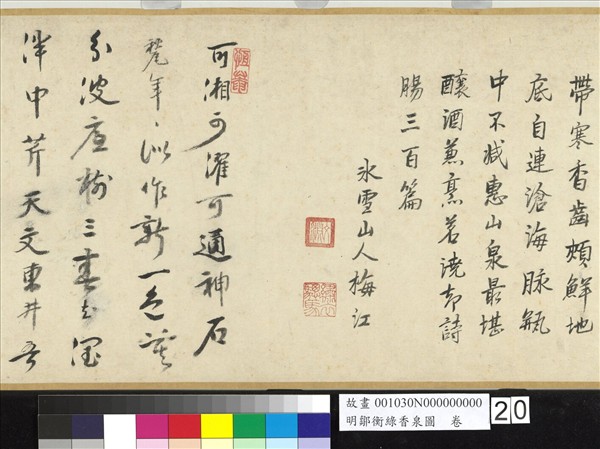 帶寒香齒頰鮮地
底自連滄海脉瓶
中不減惠山泉最堪
釀酒兼烹茗澆却詩
腸三百篇
氷雪山人梅江
可湘可濯可通神石
甃年〻作新一色
分波三
泮中芹天文東井吾
故畫 001030N000000000
明鄒衡綠香泉圖 卷
20